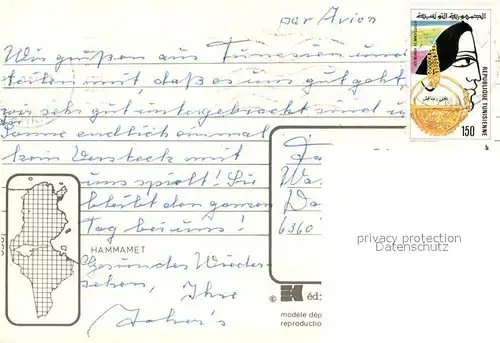 par Avion
Wir grüßen aus Tunesien und
teilen mit, daß es uns gut geht,
wir sehr gut untergebracht sind u
Sonne endlich einmal
kein Versteck mit
uns spielt! Sie
bleibt den ganzen
Tag bei uns!
HAMMAMET
Gesundes Wieder-
sehen, Ihre
الجمهورية التونسية
REPUBLIQUE TUNISIENNE
150
6360
privacy protection
Datenschutz
© éd:
modèle dép
reproductio